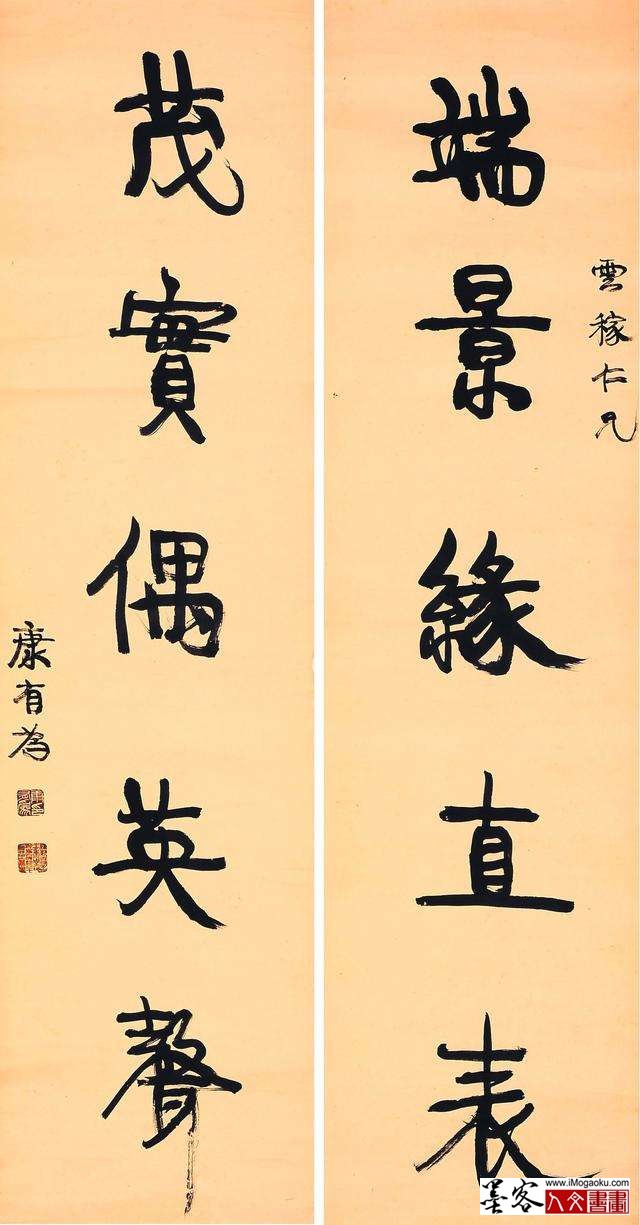 雲稼仁兄
端景緣直表
茂實偶英聲
康有為
墨客
www.iMogaoku.com
人文書畫